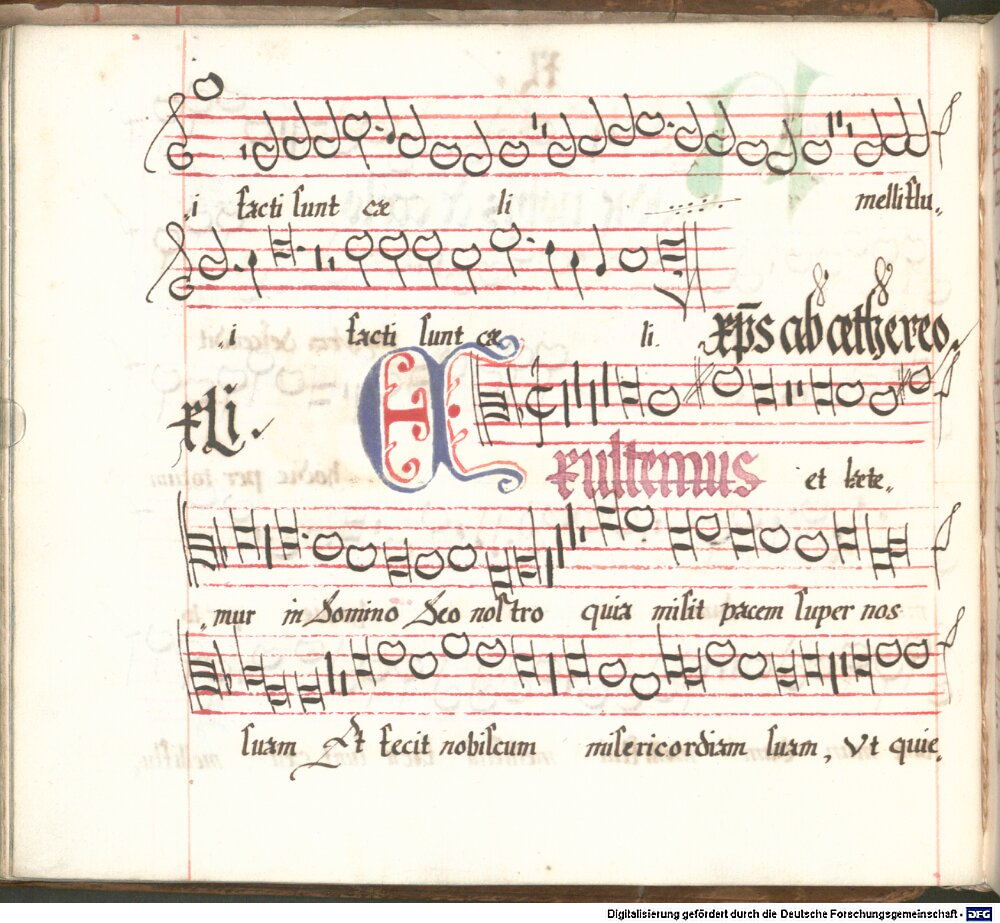 „i facti sunt cæ li mellifluˮ
„i facti sunt cæ li.
xp̄s ab æthereo.
xLi.
Exultemus et læteˮ
„mur in domino deo nostro quia misit pacem super nos
suam Et fecit nobiscum misericordiam suam, Vt quieˮ
Digitalisierung gefördert durch die Deutsche Forschungsgemeinschaft - DFG